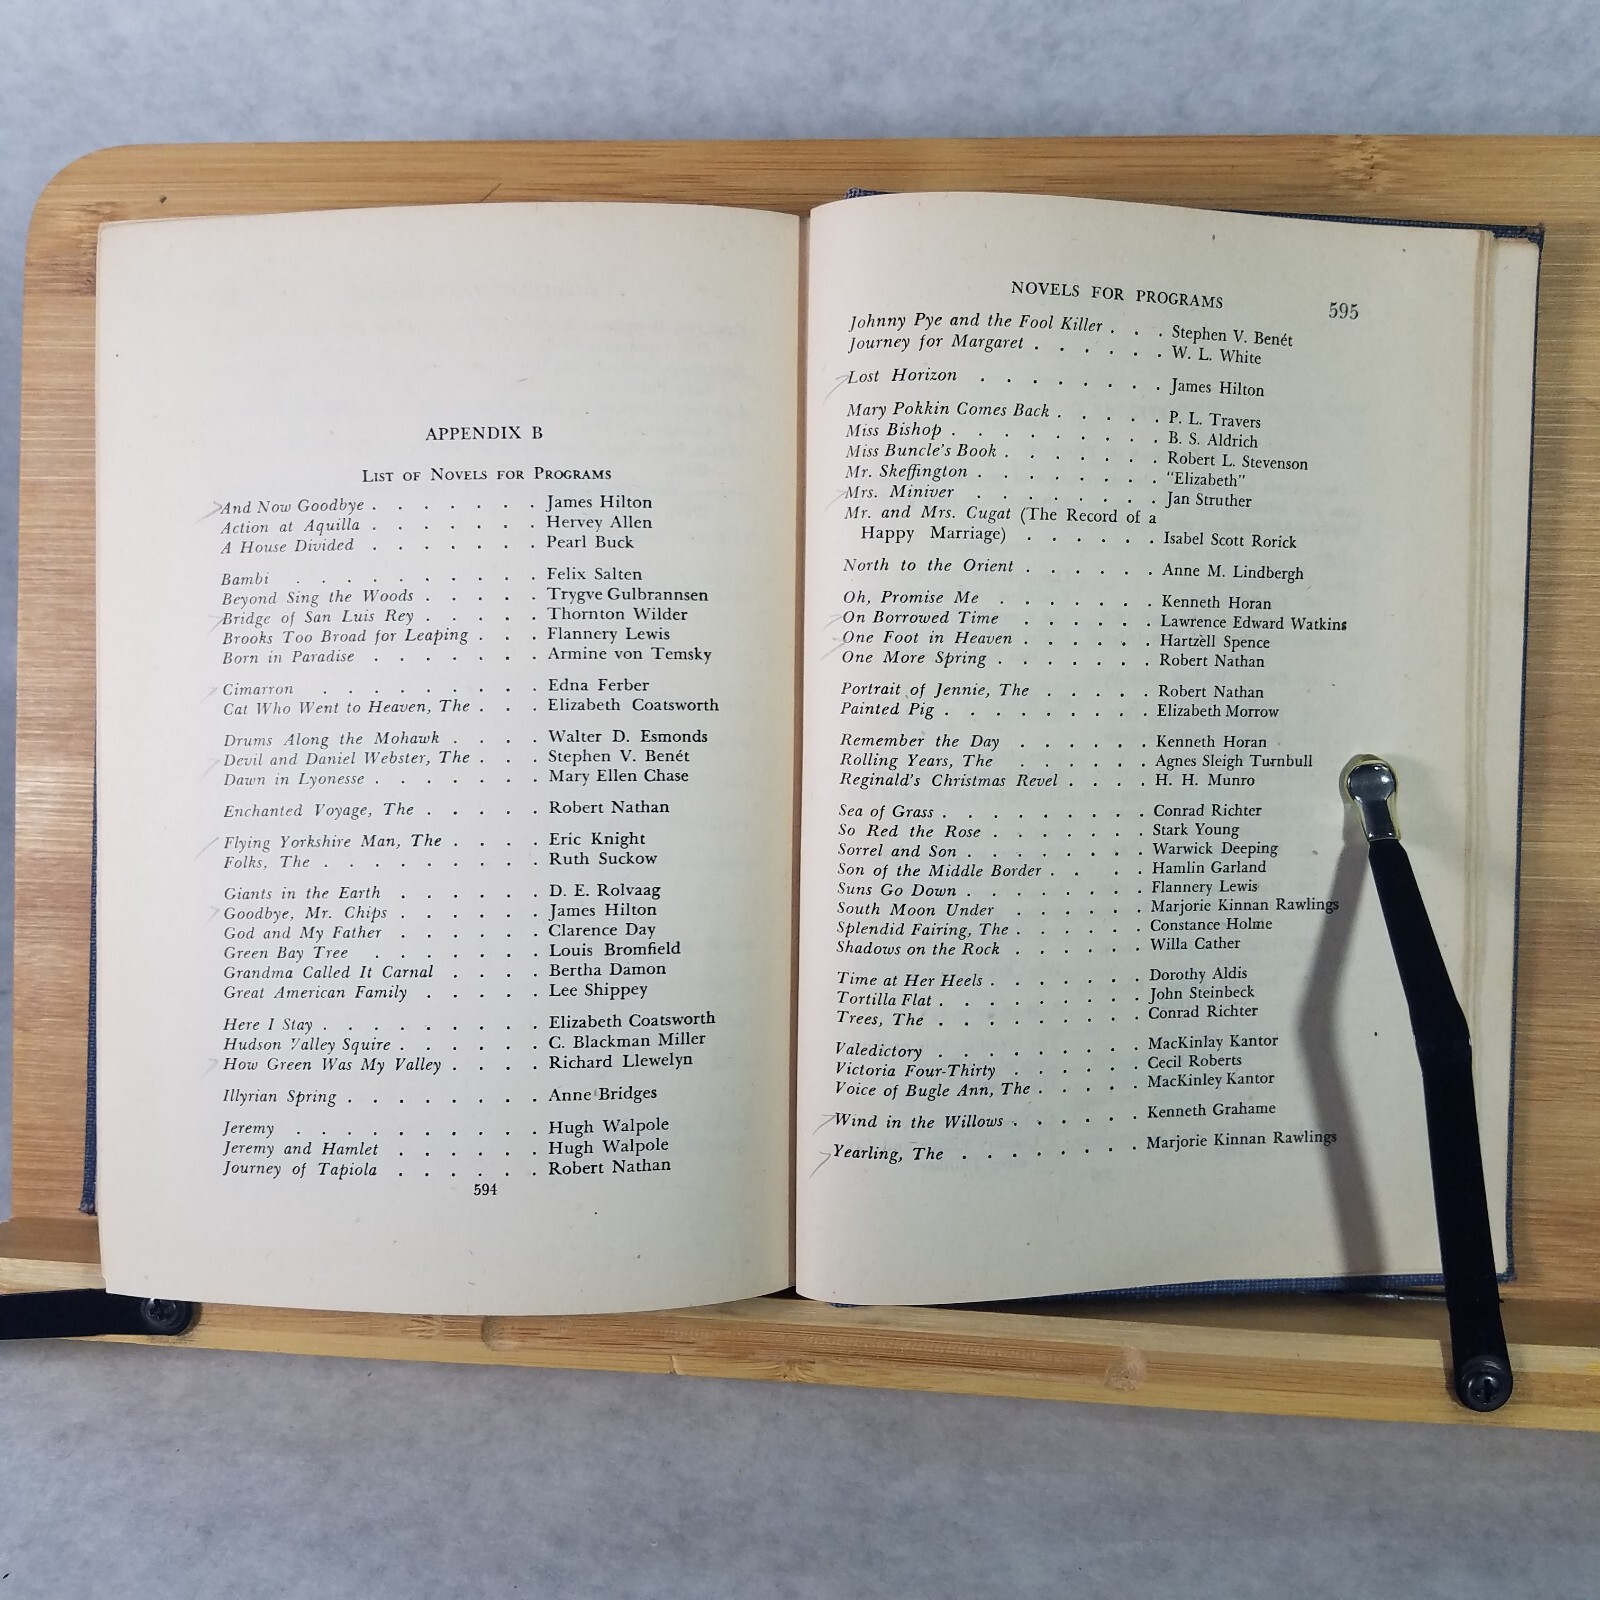 APPENDIX B
LIST OF NOVELS FOR PROGRAMS
And Now Goodbye . . . . . . . James Hilton
Action at Aquilla . . . . . . . Hervey Allen
A House Divided . . . . . . . Pearl Buck
Bambi . . . . . . . . . . Felix Salten
Beyond Sing the Woods . . . . . Trygve Gulbrannsen
Bridge of San Luis Rey . . . . . Thornton Wilder
Brooks Too Broad for Leaping . . . Flannery Lewis
Born in Paradise . . . . . . . Armine von Temsky
Cimarron . . . . . . . . . Edna Ferber
Cat Who Went to Heaven, The . . . Elizabeth Coatsworth
Drums Along the Mohawk . . . . Walter D. Esmonds
Devil and Daniel Webster, The . . . Stephen V. Benét
Dawn in Lyonesse . . . . . . . Mary Ellen Chase
Enchanted Voyage, The . . . . . Robert Nathan
Flying Yorkshire Man, The . . . . Eric Knight
Folks, The . . . . . . . . . Ruth Suckow
Giants in the Earth . . . . . . D. E. Rolvaag
Goodbye, Mr. Chips . . . . . . James Hilton
God and My Father . . . . . . Clarence Day
Green Bay Tree . . . . . . . Louis Bromfield
Grandma Called It Carnal . . . . Bertha Damon
Great American Family . . . . . Lee Shippey
Here I Stay . . . . . . . . . Elizabeth Coatsworth
Hudson Valley Squire . . . . . . C. Blackman Miller
How Green Was My Valley . . . . Richard Llewelyn
Illyrian Spring . . . . . . . . Anne Bridges
Jeremy . . . . . . . . . . Hugh Walpole
Jeremy and Hamlet . . . . . . Hugh Walpole
Journey of Tapiola . . . . . . Robert Nathan
594
NOVELS FOR PROGRAMS 595
Johnny Pye and the Fool Killer . . . Stephen V. Benét
Journey for Margaret . . . . . . W. L. White
Lost Horizon . . . . . . . . James Hilton
Mary Pokkin Comes Back . . . . . P. L. Travers
Miss Bishop . . . . . . . . . B. S. Aldrich
Miss Buncle's Book . . . . . . . Robert L. Stevenson
Mr. Skeffington . . . . . . . . "Elizabeth"
Mrs. Miniver . . . . . . . . Jan Struther
Mr. and Mrs. Cugat (The Record of a
Happy Marriage) . . . . . . Isabel Scott Rorick
North to the Orient . . . . . . Anne M. Lindbergh
Oh, Promise Me . . . . . . . Kenneth Horan
On Borrowed Time . . . . . . Lawrence Edward Watkins
One Foot in Heaven . . . . . . Hartzell Spence
One More Spring . . . . . . . Robert Nathan
Portrait of Jennie, The . . . . . Robert Nathan
Painted Pig . . . . . . . . . Elizabeth Morrow
Remember the Day . . . . . . Kenneth Horan
Rolling Years, The . . . . . . Agnes Sleigh Turnbull
Reginald's Christmas Revel . . . . H. H. Munro
Sea of Grass . . . . . . . . . Conrad Richter
So Red the Rose . . . . . . . Stark Young
Sorrel and Son . . . . . . . . Warwick Deeping
Son of the Middle Border . . . . Hamlin Garland
Suns Go Down . . . . . . . . Flannery Lewis
South Moon Under . . . . . . Marjorie Kinnan Rawlings
Splendid Fairing, The . . . . . . Constance Holme
Shadows on the Rock . . . . . . Willa Cather
Time at Her Heels . . . . . . . Dorothy Aldis
Tortilla Flat . . . . . . . . . John Steinbeck
Trees, The . . . . . . . . . Conrad Richter
Valedictory . . . . . . . . . MacKinlay Kantor
Victoria Four-Thirty . . . . . . Cecil Roberts
Voice of Bugle Ann, The . . . . . MacKinley Kantor
Wind in the Willows . . . . . . Kenneth Grahame
Yearling, The . . . . . . . . Marjorie Kinnan Rawlings